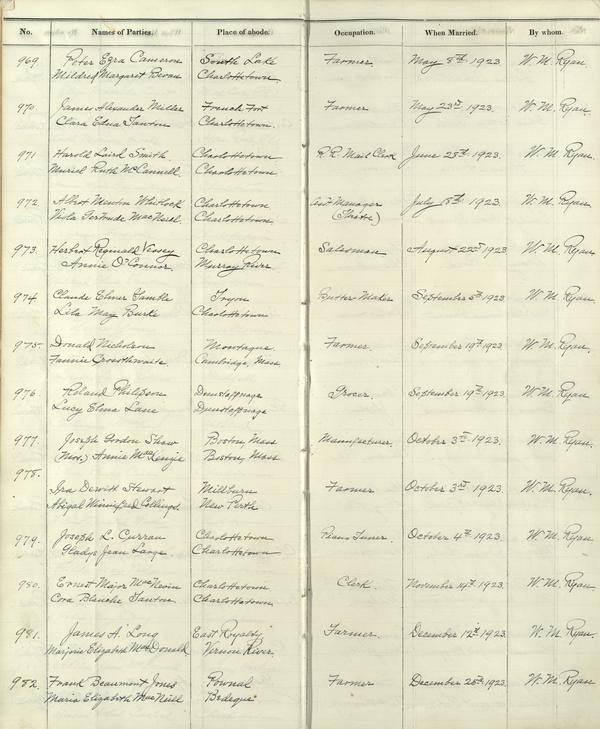 No. Names of Parties. Place of abode. Occupation. When Married. By whom.
969 Peter Ezra Cameron South Lake Farmer May 8th 1923 W. M. Ryan
Mildred Margaret Bevan Charlottetown
970. James Alexander Miller French Fort Farmer May 23rd 1923. W. M. Ryan
Clara Edna Tanton Charlottetown.
971 Harold Laird Smith Charlottetown R.R. Mail Clerk June 28th 1923. W. M. Ryan
Muriel Ruth McCannell Charlottetown
972 Albert Menton Whitlock Charlottetown Asst Manager July 18th 1923 W. M. Ryan
Viola Gertrude MacNeill Charlottetown. (Theatre)
973. Herbert Reginald Vessey Charlottetown Salesman August 22nd 1923 W. M. Ryan
Annie O'Connor. Murray River
974 Claude Elmer Gamble Tryon Butter Maker September 5th 1923 W. M. Ryan.
Lila May Burke Charlottetown
975. Donald Nicholson Montague Farmer. September 19th 1923 W. M. Ryan.
Fannie Crosthwaite Cambridge, Mass
976 Roland Philipson Dunstaffnage Grocer. September 19th 1923. W. M. Ryan
Lucy Elma Lane Dunstaffnage
977. Joseph Gordon Shaw Boston, Mass Manufacturer. October 3rd 1923. W. M. Ryan.
(Mrs.) Annie MacKenzie Boston, Mass
978.
Ira Dewitt Stewart Millburn Farmer October 3rd 1923. W. M. Ryan.
Abigal Winnifred Collings. New Perth
979. Joseph L. Curran Charlottetown Piano Tuner. October 4th 1923. W. M. Ryan
Gladys Jean Large Charlottetown
980. Ernest Major MacKevin Charlottetown Clerk. November 14th 1923. W. M. Ryan
Cora Blanche Tanton Charlottetown
981. James A. Long East Royalty Farmer. December 12th 1923. W. M. Ryan.
Marjorie Elizabeth MacDonald Vernon River.
982. Frank Beaumont Jones Pownal Farmer December 26th 1923. W. M. Ryan
Maria Elizabeth MacNeill Bedeque